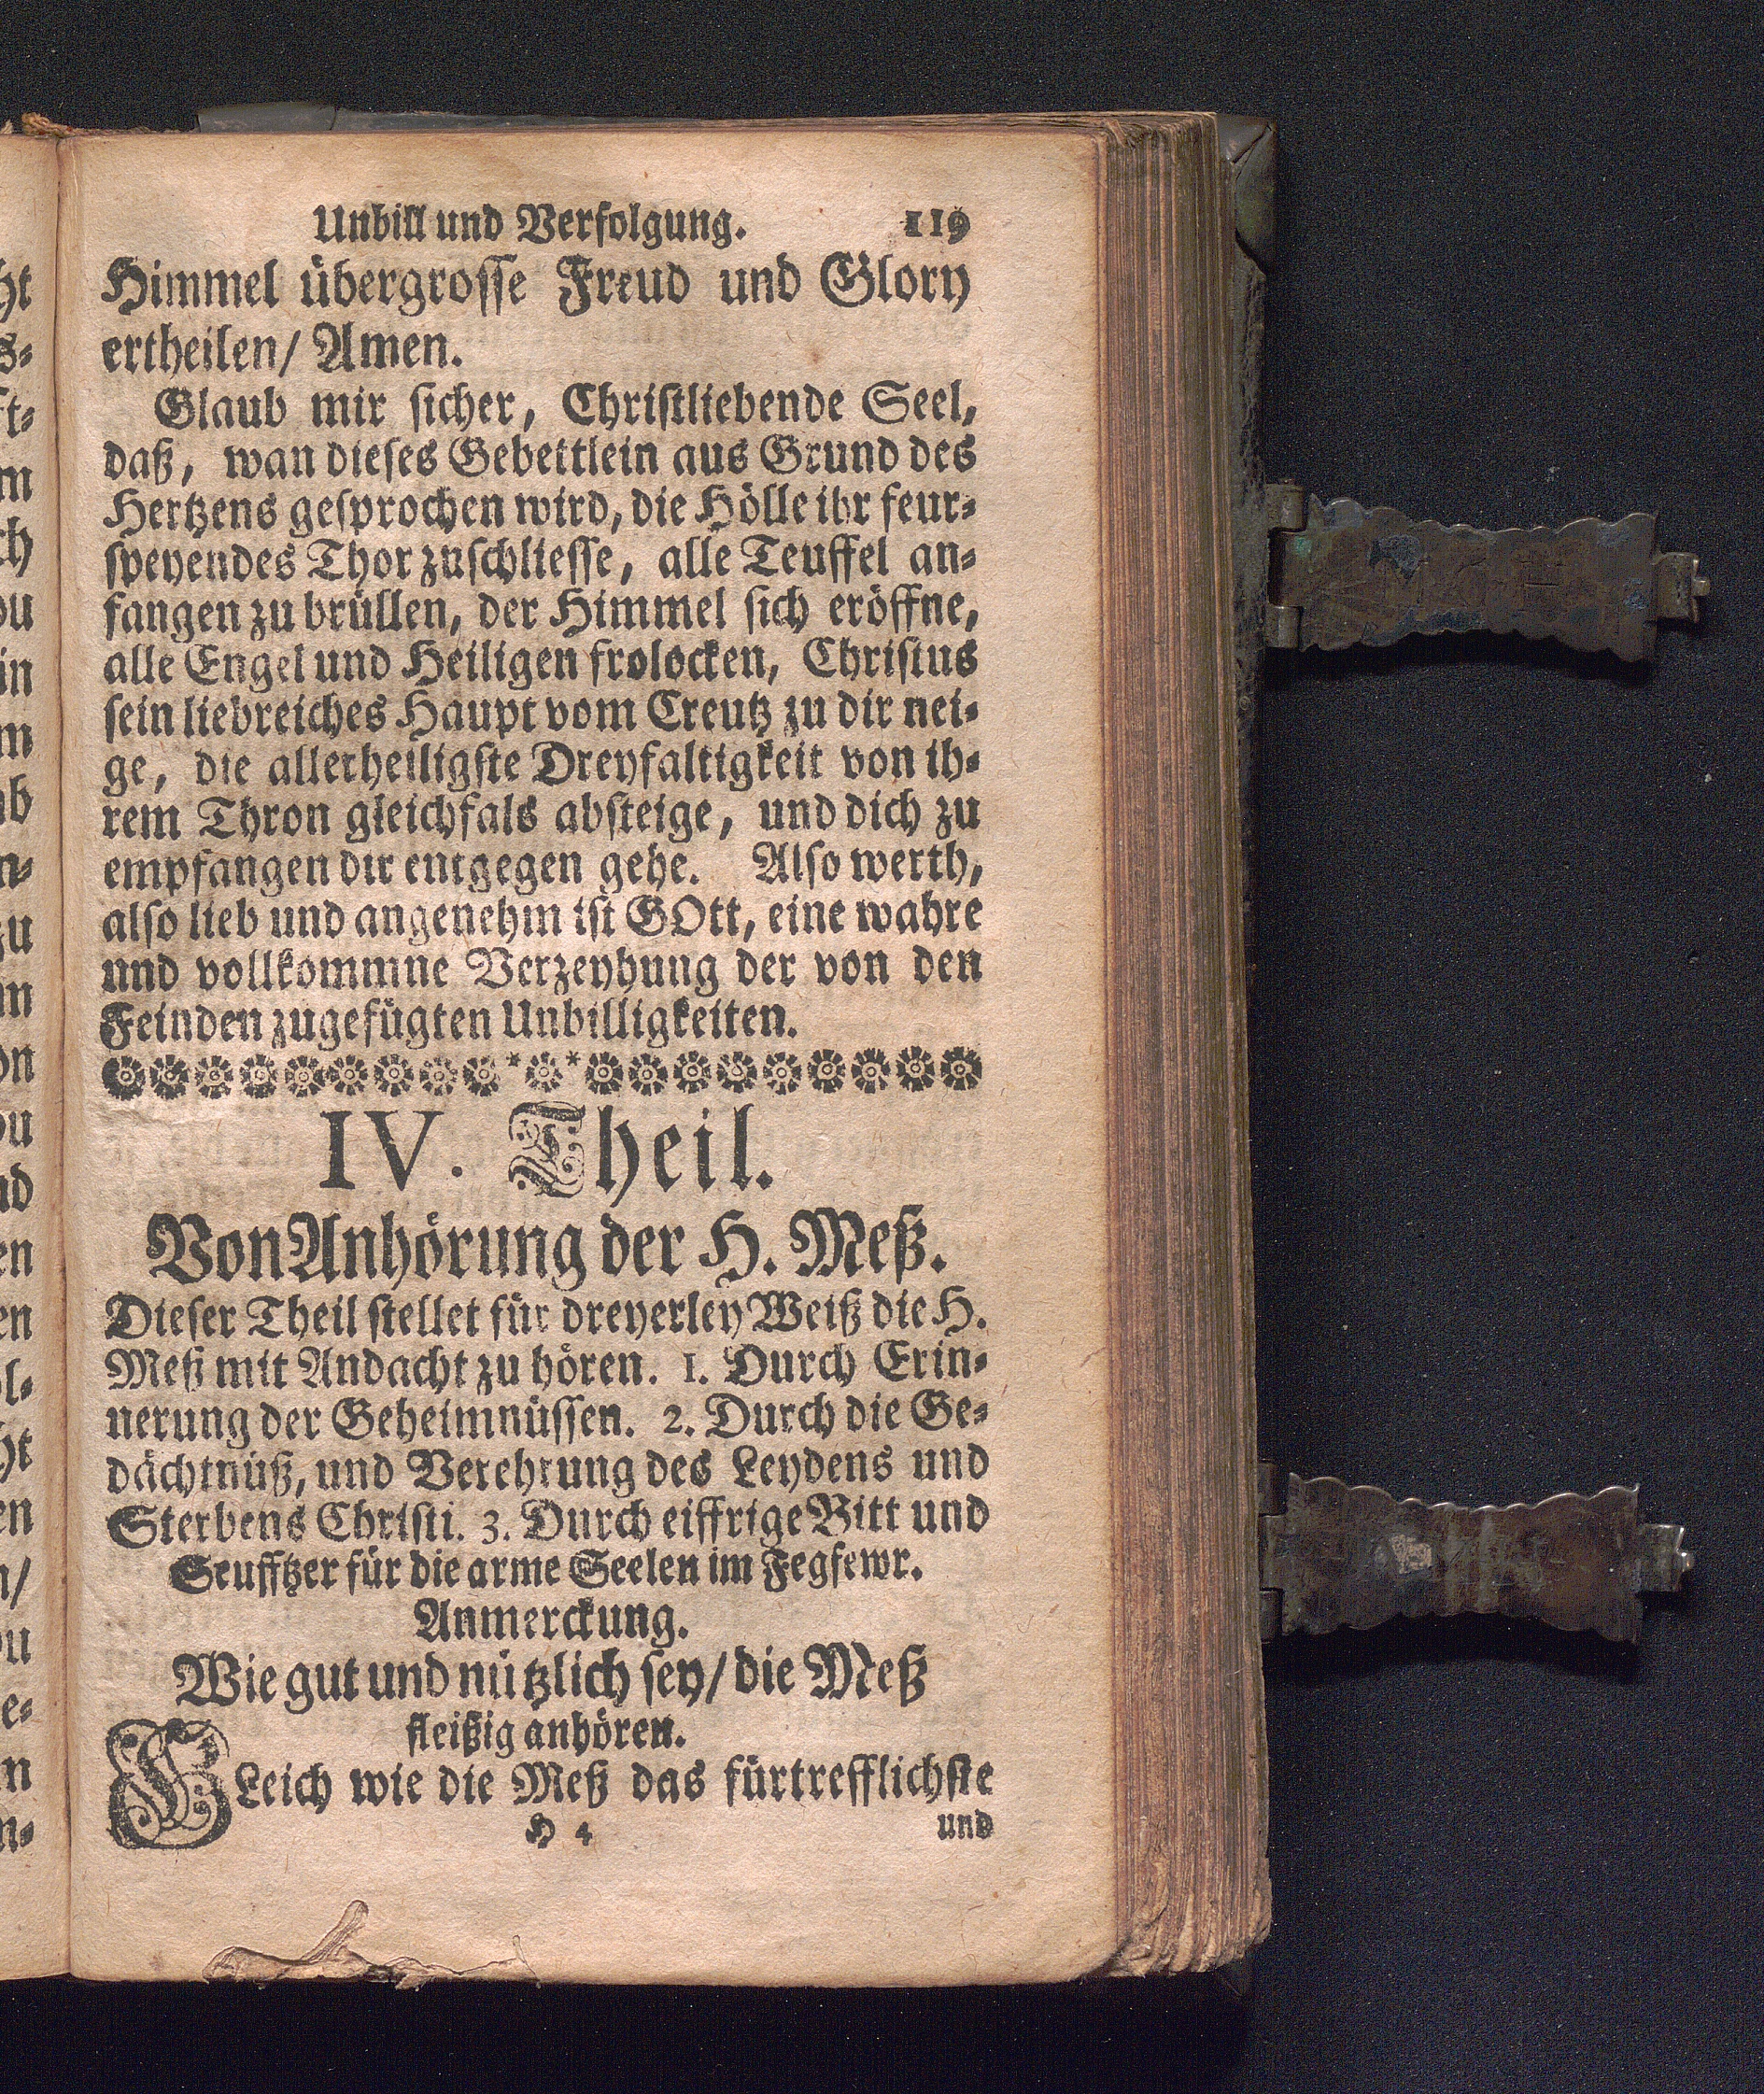 Unbill und Verfolgung. 119
Himmel übergrosse Freud und Glory
ertheilen/ Amen.
Glaub mir sicher, Christliebende Seel,
daß, wan dieses Gebettlein aus Grund des
Hertzens gesprochen wird, die Hölle ihr feur-
speyendes Thor zuschliesse, alle Teuffel an-
fangen zu brüllen, der Himmel sich eröffne,
alle Engel und Heiligen frolocken, Christus
sein liebreiches Haupt vom Creutz zu dir nei-
ge, die allerheiligste Dreyfaltigkeit von ih-
rem Thron gleichfals absteige, und dich zu
empfangen dir entgegen gehe. Also werth,
also lieb und angenehm ist GOtt, eine wahre
und vollkommne Verzeyhung der von den
Feinden zugefügten Unbilligkeiten.
IV. Theil.
Von Anhörung der H. Meß.
Dieser Theil stellet für dreyerley Weiß die H.
Meß mit Andacht zu hören. 1. Durch Erin-
nerung der Geheimnüssen. 2. Durch die Ge-
dächtnüß, und Verehrung des Leydens und
Sterbens Christi. 3. Durch eiffrige Bitt und
Seufftzer für die arme Seelen im Fegfewr.
Anmerckung.
Wie gut und nützlich sey/ die Meß
fleißig anhören.
GLeich wie die Meß das fürtrefflichste
H 4 und